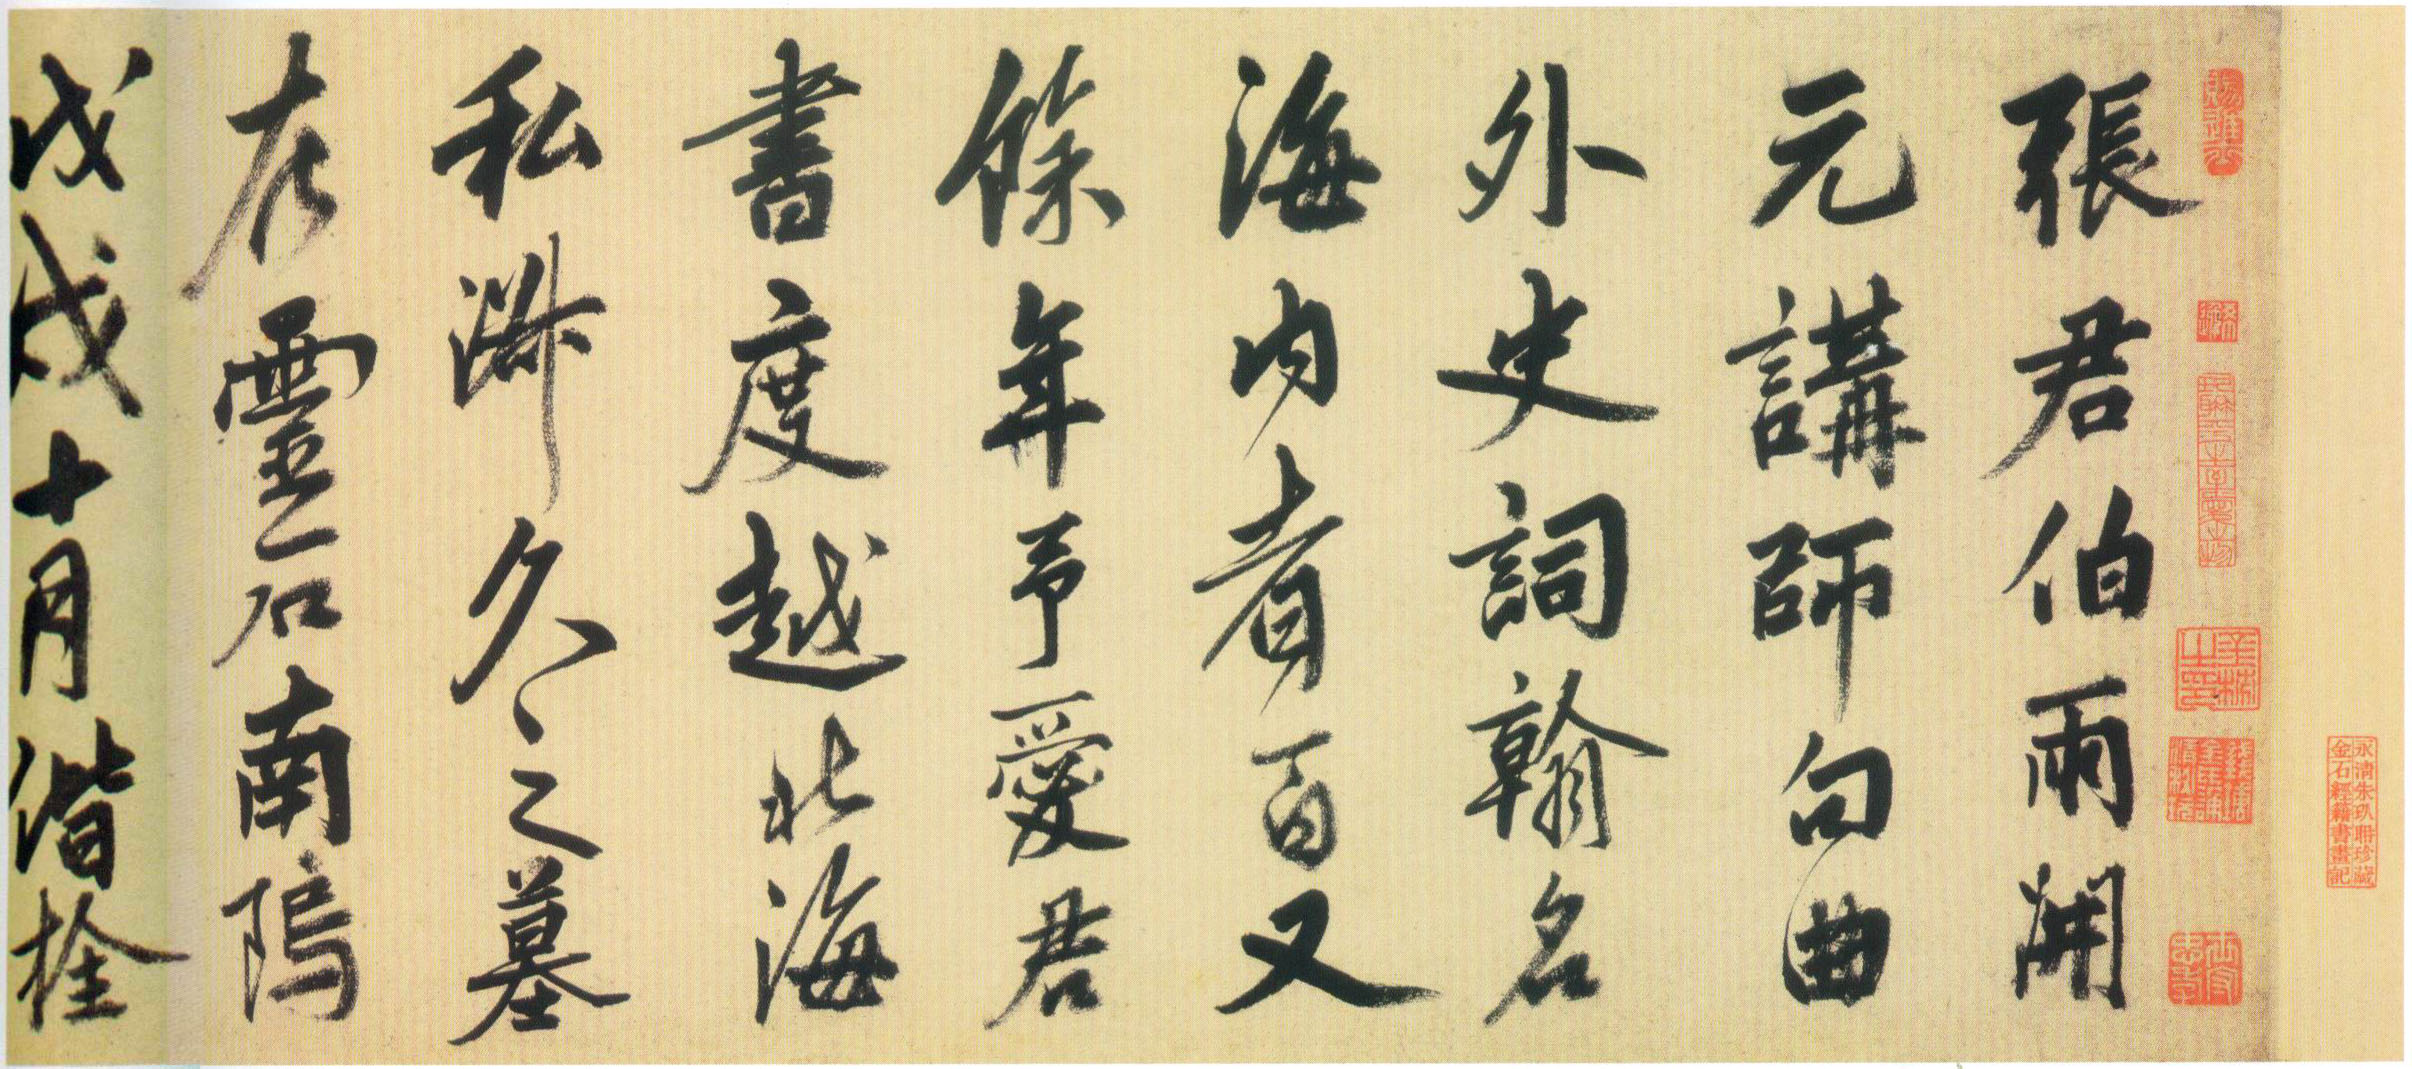 永清朱玖聃珍藏
金石經籍書畫記
張君伯雨開
元講師句曲
外史詞翰名
海内者百又
餘年予愛君
書度越北海
私淑久〻之墓
在靈石南塢
戊戌十月偕栓